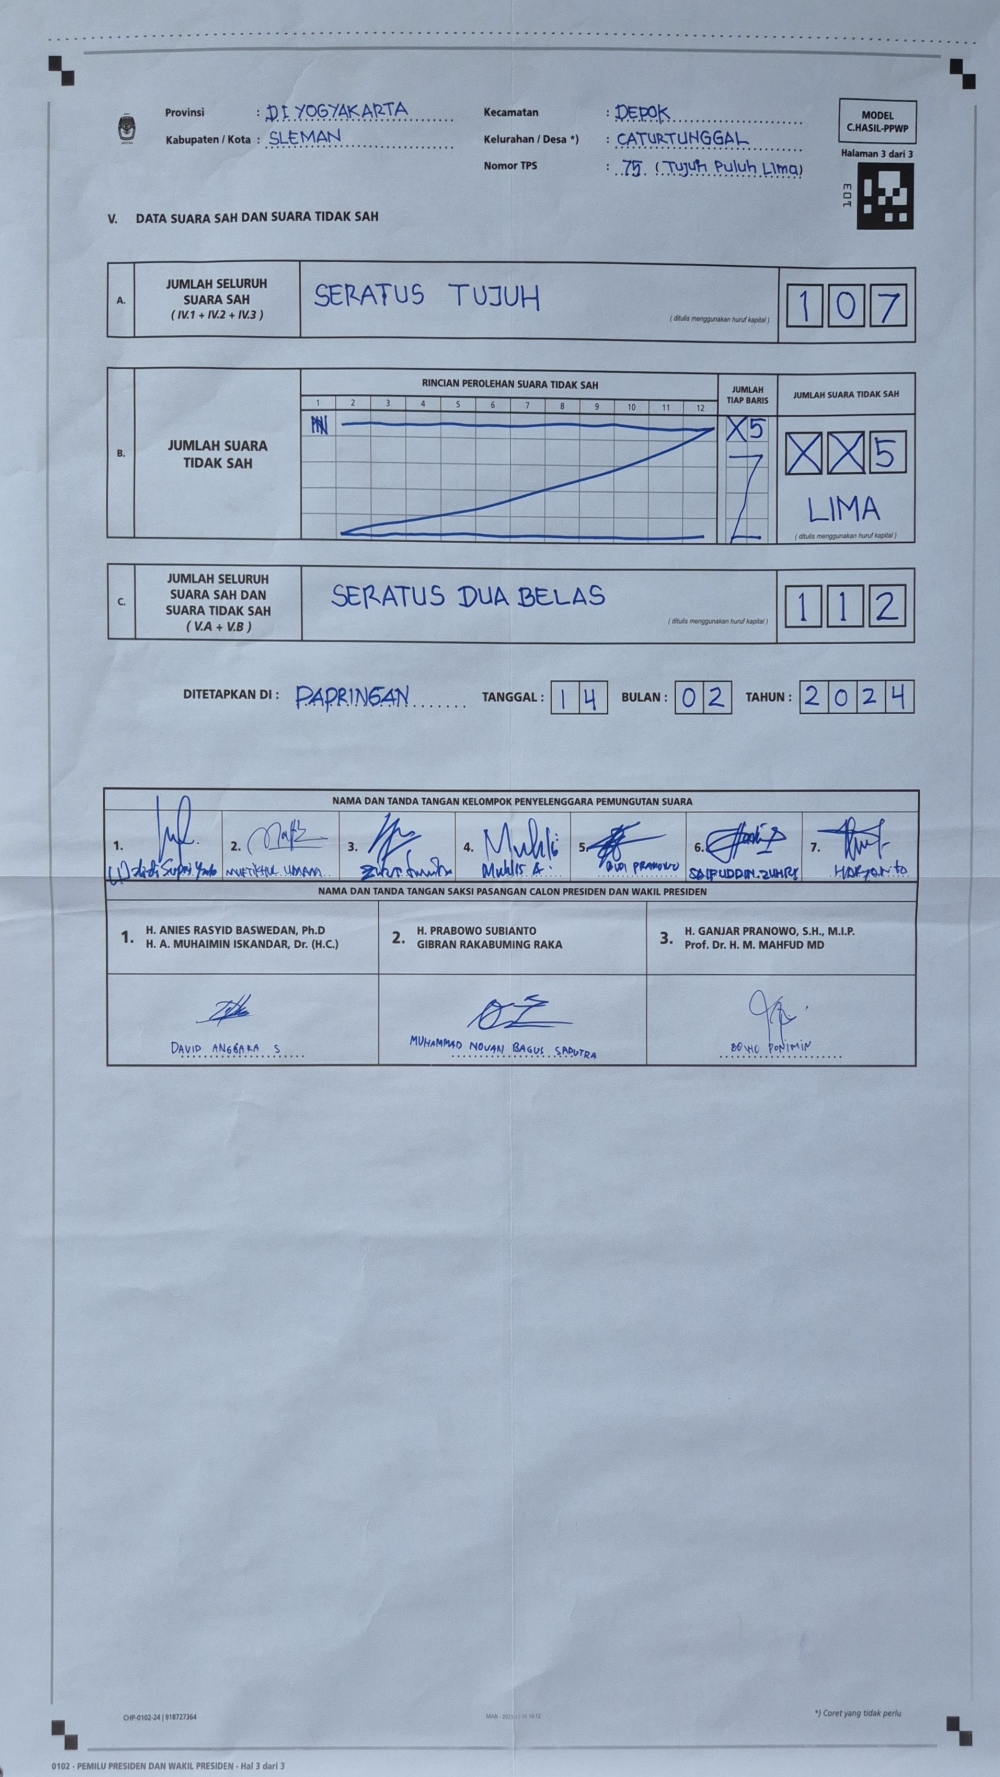 Provinsi : DI YOGYAKARTA
Kabupaten / Kota : SLEMAN
Kecamatan : DEPOK
Kelurahan / Desa *) : CATURTUNGGAL
Nomor TPS : 75 (Tujuh Puluh Lima)
MODEL
C.HASIL-PPWP
Halaman 3 dari 3
V. DATA SUARA SAH DAN SUARA TIDAK SAH
A. JUMLAH SELURUH
SUARA SAH
( IV.1 + IV.2 + IV.3 )
SERATUS TUJUH
( ditulis menggunakan huruf kapital )
1 0 7
B. JUMLAH SUARA
TIDAK SAH
RINCIAN PEROLEHAN SUARA TIDAK SAH
1 2 3 4 5 6 7 8 9 10 11 12
JUMLAH
TIAP BARIS
X 5
JUMLAH SUARA TIDAK SAH
X X 5
LIMA
( ditulis menggunakan huruf kapital )
C. JUMLAH SELURUH
SUARA SAH DAN
SUARA TIDAK SAH
( V.A + V.B )
SERATUS DUA BELAS
( ditulis menggunakan huruf kapital )
1 1 2
DITETAPKAN DI : PAPRINGAN TANGGAL : 14 BULAN : 02 TAHUN : 2024
NAMA DAN TANDA TANGAN KELOMPOK PENYELENGGARA PEMUNGUTAN SUARA
1. 2. 3. 4. 5. 6. 7.
Muhlis A. BUDI PRANOWO SAIFUDDIN ZUHRI HARYANTO
NAMA DAN TANDA TANGAN SAKSI PASANGAN CALON PRESIDEN DAN WAKIL PRESIDEN
1. H. ANIES RASYID BASWEDAN, Ph.D
H. A. MUHAIMIN ISKANDAR, Dr. (H.C.)
2. H. PRABOWO SUBIANTO
GIBRAN RAKABUMING RAKA
3. H. GANJAR PRANOWO, S.H., M.I.P.
Prof. Dr. H. M. MAHFUD MD
DAVID ANGGARA S
MUHAMMAD NOVAN BAGUS SAPUTRA
PONIMIN
CHP-0102-24 | 918727364
*) Coret yang tidak perlu
0102 - PEMILU PRESIDEN DAN WAKIL PRESIDEN - Hal 3 dari 3